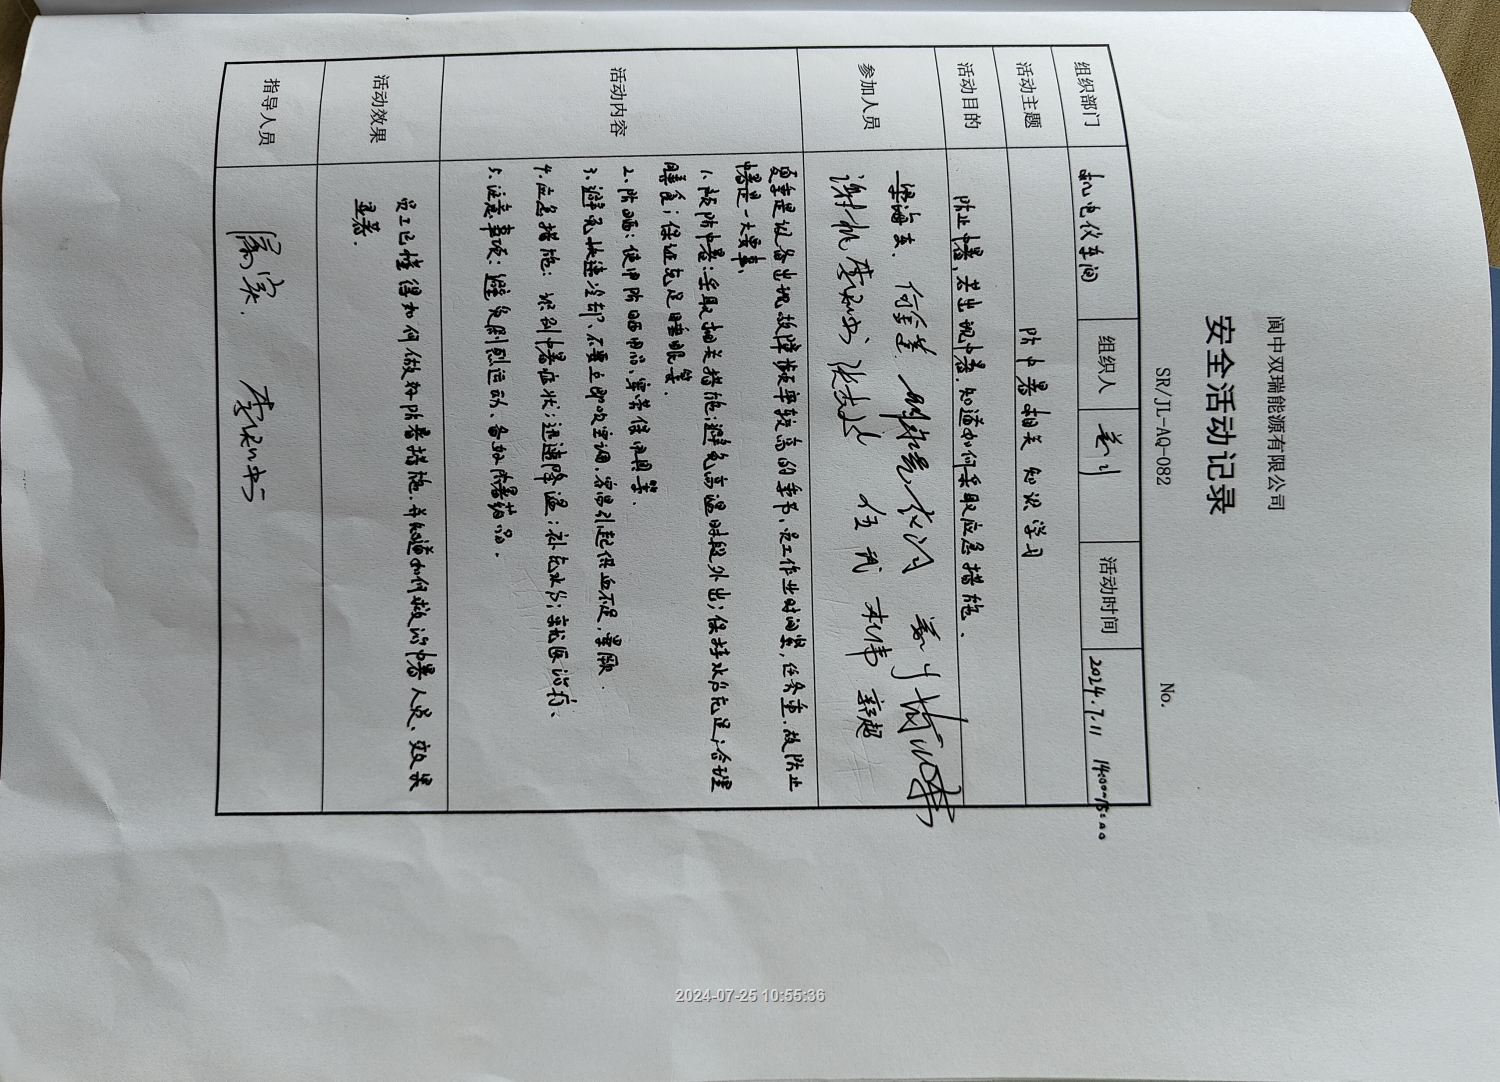 阆中双瑞能源有限公司
安全活动记录
SR/JL-AQ-082 No.
组织部门 机电仪车间 组织人 活动时间 2024.7.11 14:00-15:00
活动主题 防中暑相关知识学习
活动目的 防止中暑,若出现中暑,知道如何采取应急措施.
参加人员 梁海东、何金莲
伍武 杜伟
活动内容 夏季是设备出现故障频率较高的季节、员工作业时间紧,任务重.故防止
中暑是一大要事、
1、预防中暑:采取相关措施;避免高温时段外出;保持水份充足;合理
膳食;保证充足睡眠等.
2、防晒:使用防晒用品、穿劳保用具等.
3、避免快速冷却、不要立即吹空调.容易引起供血不足,晕厥.
4、应急措施:识别中暑症状;迅速降温;补充水分;就医治疗、
5、注意事项:避免剧烈运动、备好防暑药品.
活动效果 员工已懂得如何做好防暑措施.并知道如何救治中暑人员、效果
显著.
指导人员
2024-07-25 10:55:36